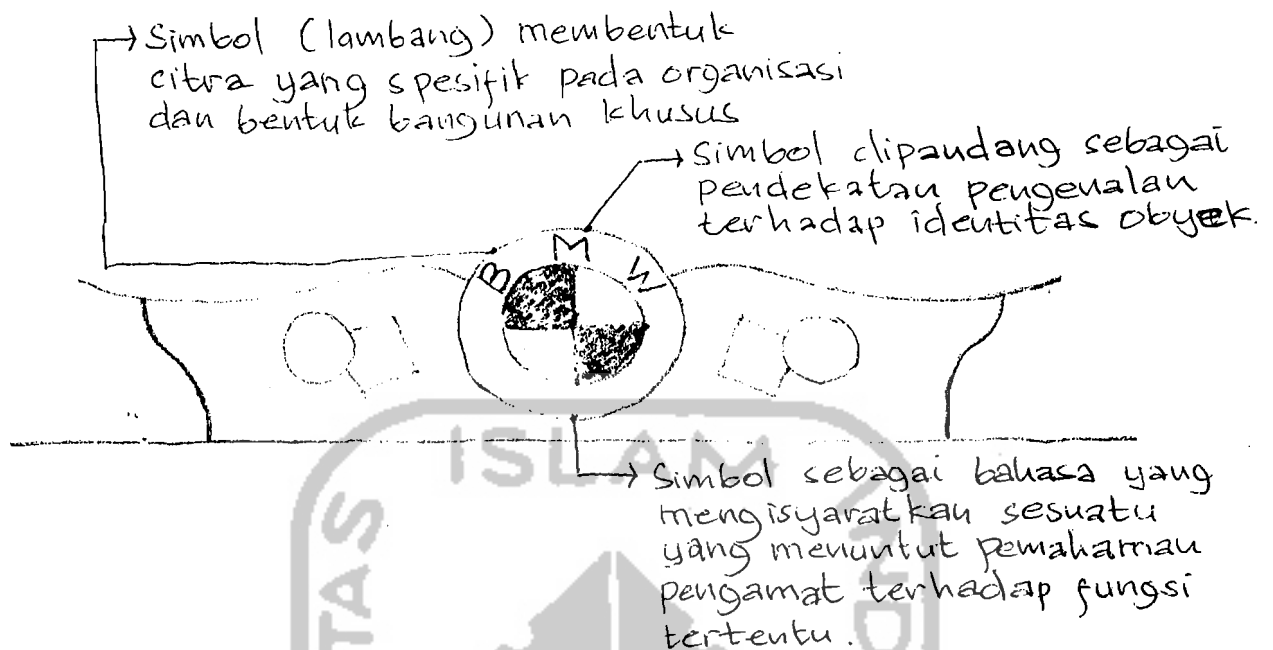 Simbol (lambang) membentuk
citra yang spesifik pada organisasi
dan bentuk bangunan khusus
Simbol dipandang sebagai
pendekatan pengenalan
terhadap identitas obyek.
B M W
Simbol sebagai bahasa yang
mengisyaratkan sesuatu
yang menuntut pemahaman
pengamat terhadap fungsi
tertentu.
ISLAM
TAS
INDO